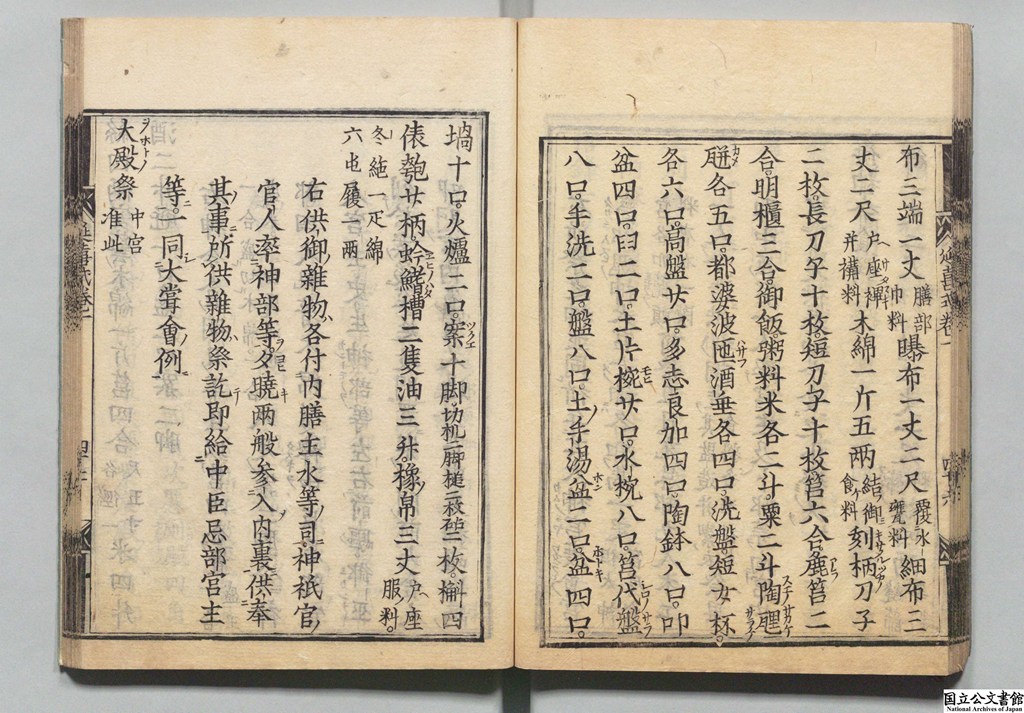 布三端一丈膳部巾料曝布一丈二尺覆水甕料細布三
丈二尺戸座襅并襷料木綿一斤五両結御飯料刻柄刀子
二枚。長刀子十枚。短刀子十枚。筥六合。麁筥二
合。明櫃三合。御飯粥料米各二斗。粟二斗。陶
瓼各五口。都婆波匜酒垂各四口。洗盤短女坏
各六口。高盤廿口。多志良加四口。陶鉢八口。叩
盆四口。臼二口。土片椀廿口。水椀八口。筥代盤
八口。手洗二口。盤八口。土手湯盆二口。盆四口。
堝十口。火爐二口。案十脚。切机二脚槌二枚砧二枚。槲四
俵匏廿柄蚡鰭槽二隻油三升。橡帛三丈戸座服料。
冬絁一疋綿六屯履一両
右供御雜物。各付内膳主水等司。神祇官
官人率神部等。夕曉兩般参入内裏供奉
其事。所供雜物祭訖即給中臣忌部宮主
等。一同大嘗會例
大殿祭中宮准此
延喜式巻一
国立公文書館
National Archives of Japan